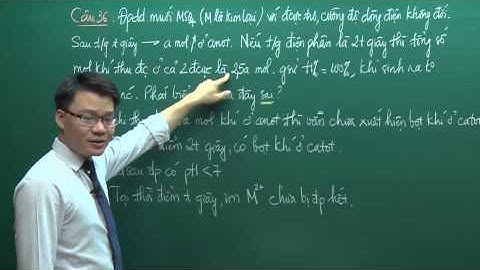 Câu 36. Đpdd muối MSO4 (M là kim loại) với đ/cực trơ, cường độ dòng điện không đổi.
Sau t/g t giây → a mol ↑ ở anot. Nếu t/g điện phân là 2t giây thì tổng số
mol khí thu đc ở cả 2 đ/cực là 2,5a mol. g/sử H% = 100%, khí sinh ra ko
Phát biểu đây sau?
a mol khí ở anot thì vẫn chưa xuất hiện bọt khí ở catot.
điểm 2t giây, có bọt khí ở catot.
sau đp có pH < 7
Tại thời điểm t giây, ion M2+ chưa bị đp hết.